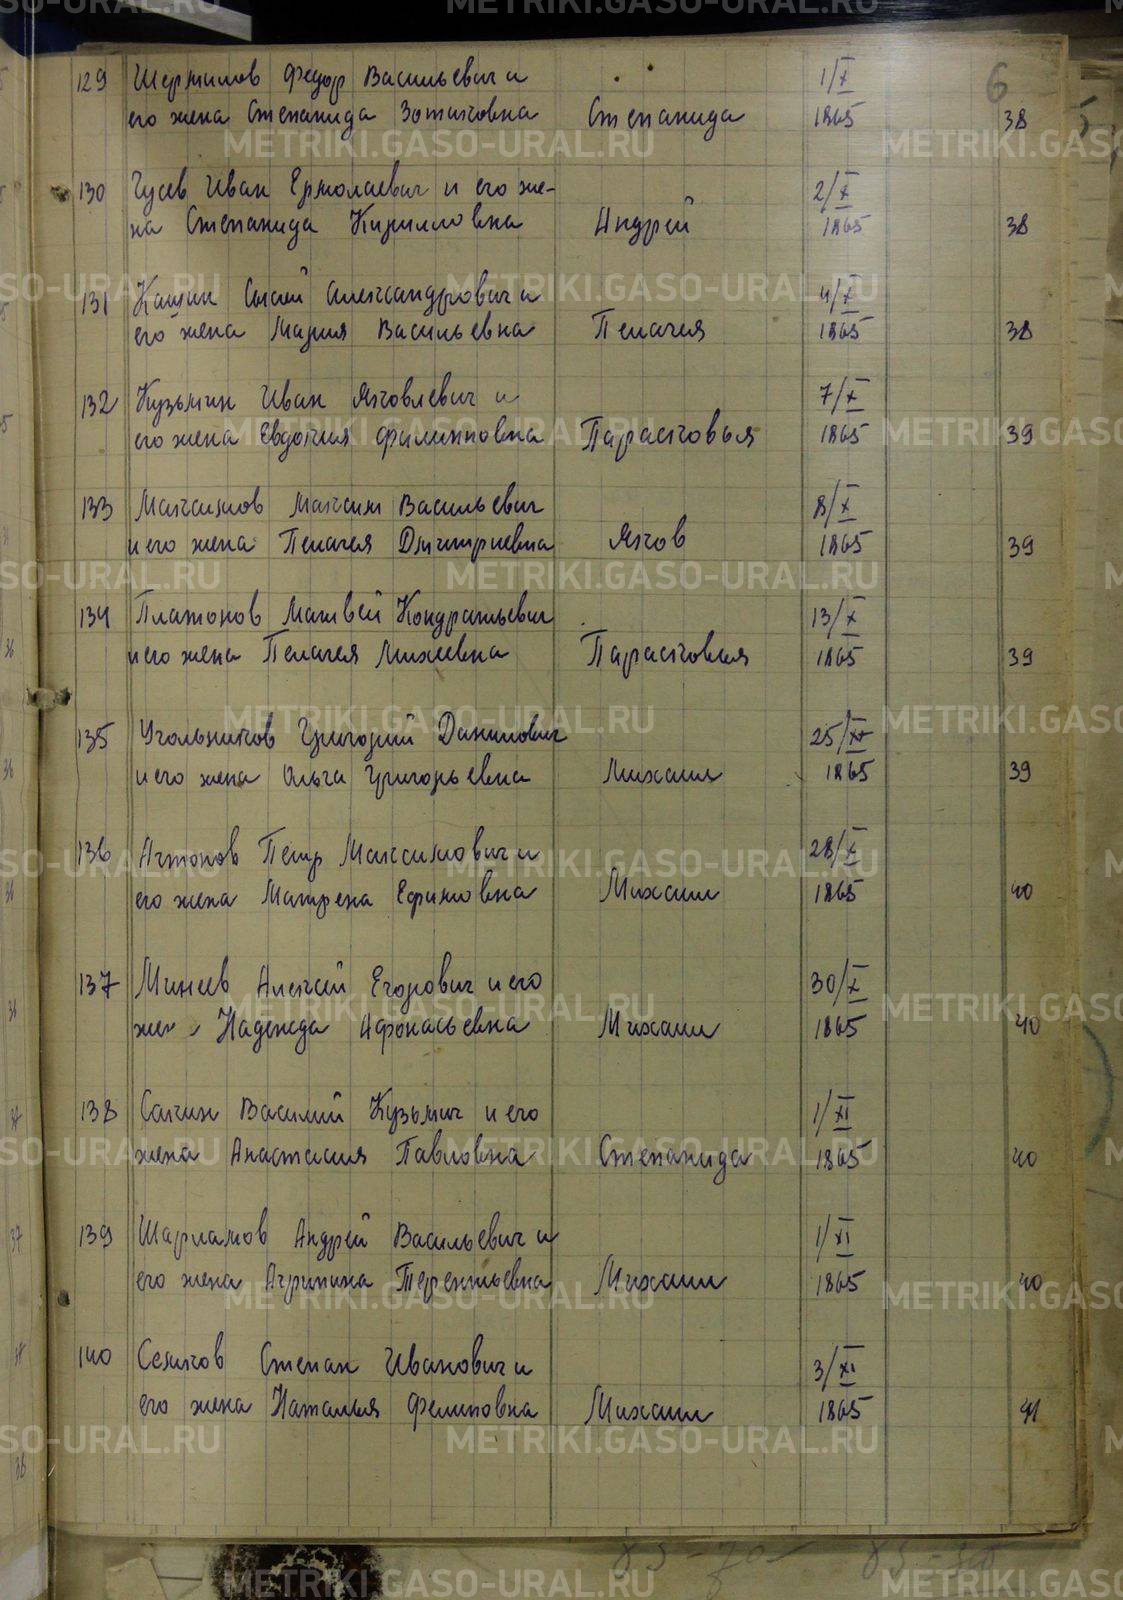 6
129 Шермилов Федор Васильевич и 1/X
его жена Степанида Зотиковна Степанида 1865 38
130 Гусев Иван Ермолаевич и его же- 2/X
на Степанида Кирилловна Андрей 1865 38
131 Кашин Сысой Александрович и 4/X
его жена Мария Васильевна Пелагея 1865 38
132 Кузьмин Иван Яковлевич и 7/X
его жена Евдокия Филипповна Парасковья 1865 39
133 Максимов Максим Васильевич 8/X
и его жена Пелагея Дмитриевна Яков 1865 39
134 Платонов Матвей Кондратьевич 13/X
и его жена Пелагея Михеевна Парасковья 1865 39
135 Угольников Григорий Данилович 25/X
и его жена Ольга Григорьевна Михаил 1865 39
136 Антонов Петр Максимович и 28/X
его жена Матрена Ефимовна Михаил 1865 40
137 Минеев Алексей Егорович и его 30/X
жен Надежда Афонасьевна Михаил 1865 40
138 Савин Василий Кузьмич и его 1/XI
жена Анастасия Павловна Степанида 1865 40
139 Шарламов Андрей Васильевич и 1/XI
его жена Агрипина Терентьевна Михаил 1865 40
140 Сельков Степан Иванович и 3/XI
его жена Наталья Филиповна Михаил 1865 41
METRIKI.GASO-URAL.RU